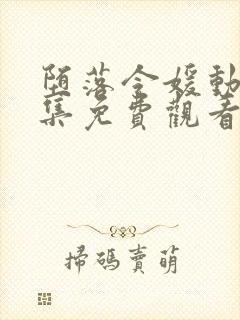 堕落令媛動
集免費觀看
掃碼賣萌